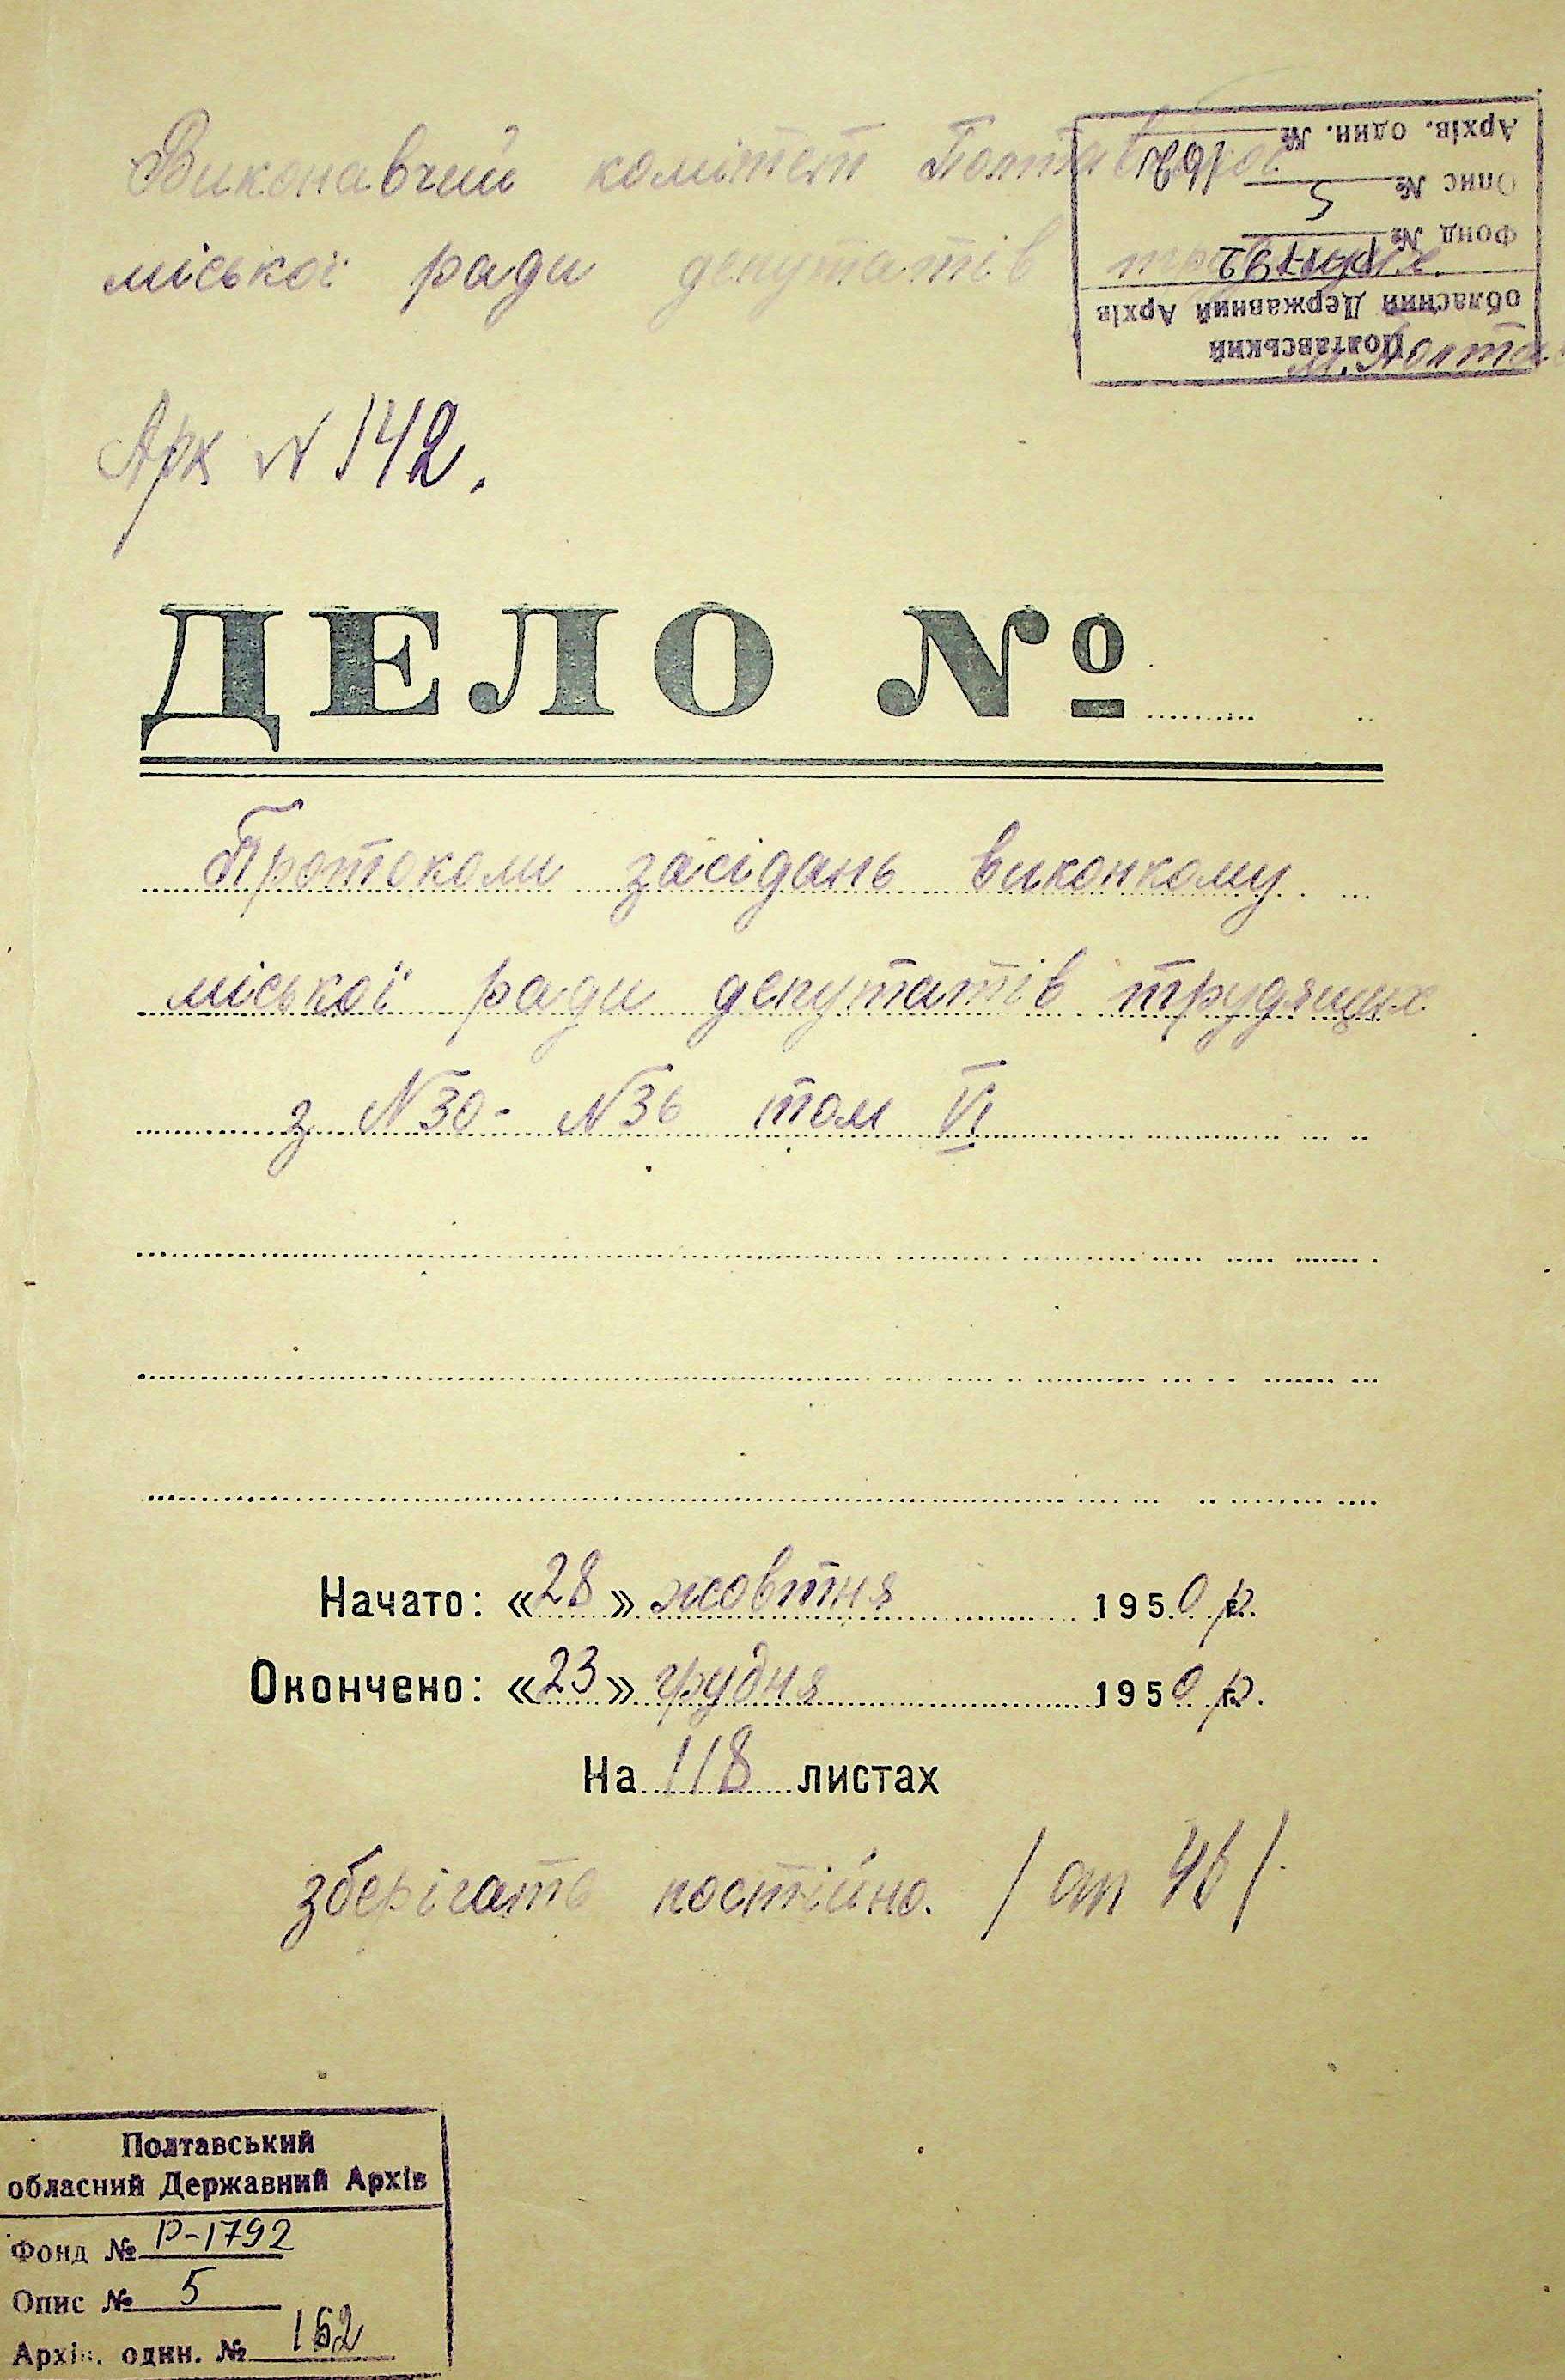 Виконавчий комітет Полтавської
міської ради депутатів трудящих
м. Полтава
Архів. один. № 162
Опис № 5
Фонд № Р-1792
обласний Державний Архів
Полтавський
Арк N 142.
ДЕЛО №
Протоколи засідань виконкому
міської ради депутатів трудящих
з N30- N36 том VI
Начато: «28» жовтня 1950 р.
Окончено: «23» грудня 1950 р.
На 118 листах
зберігать постійно. / ст 4б /
Полтавський
обласний Державний Архів
Фонд № Р-1792
Опис № 5
Архів. один. № 162